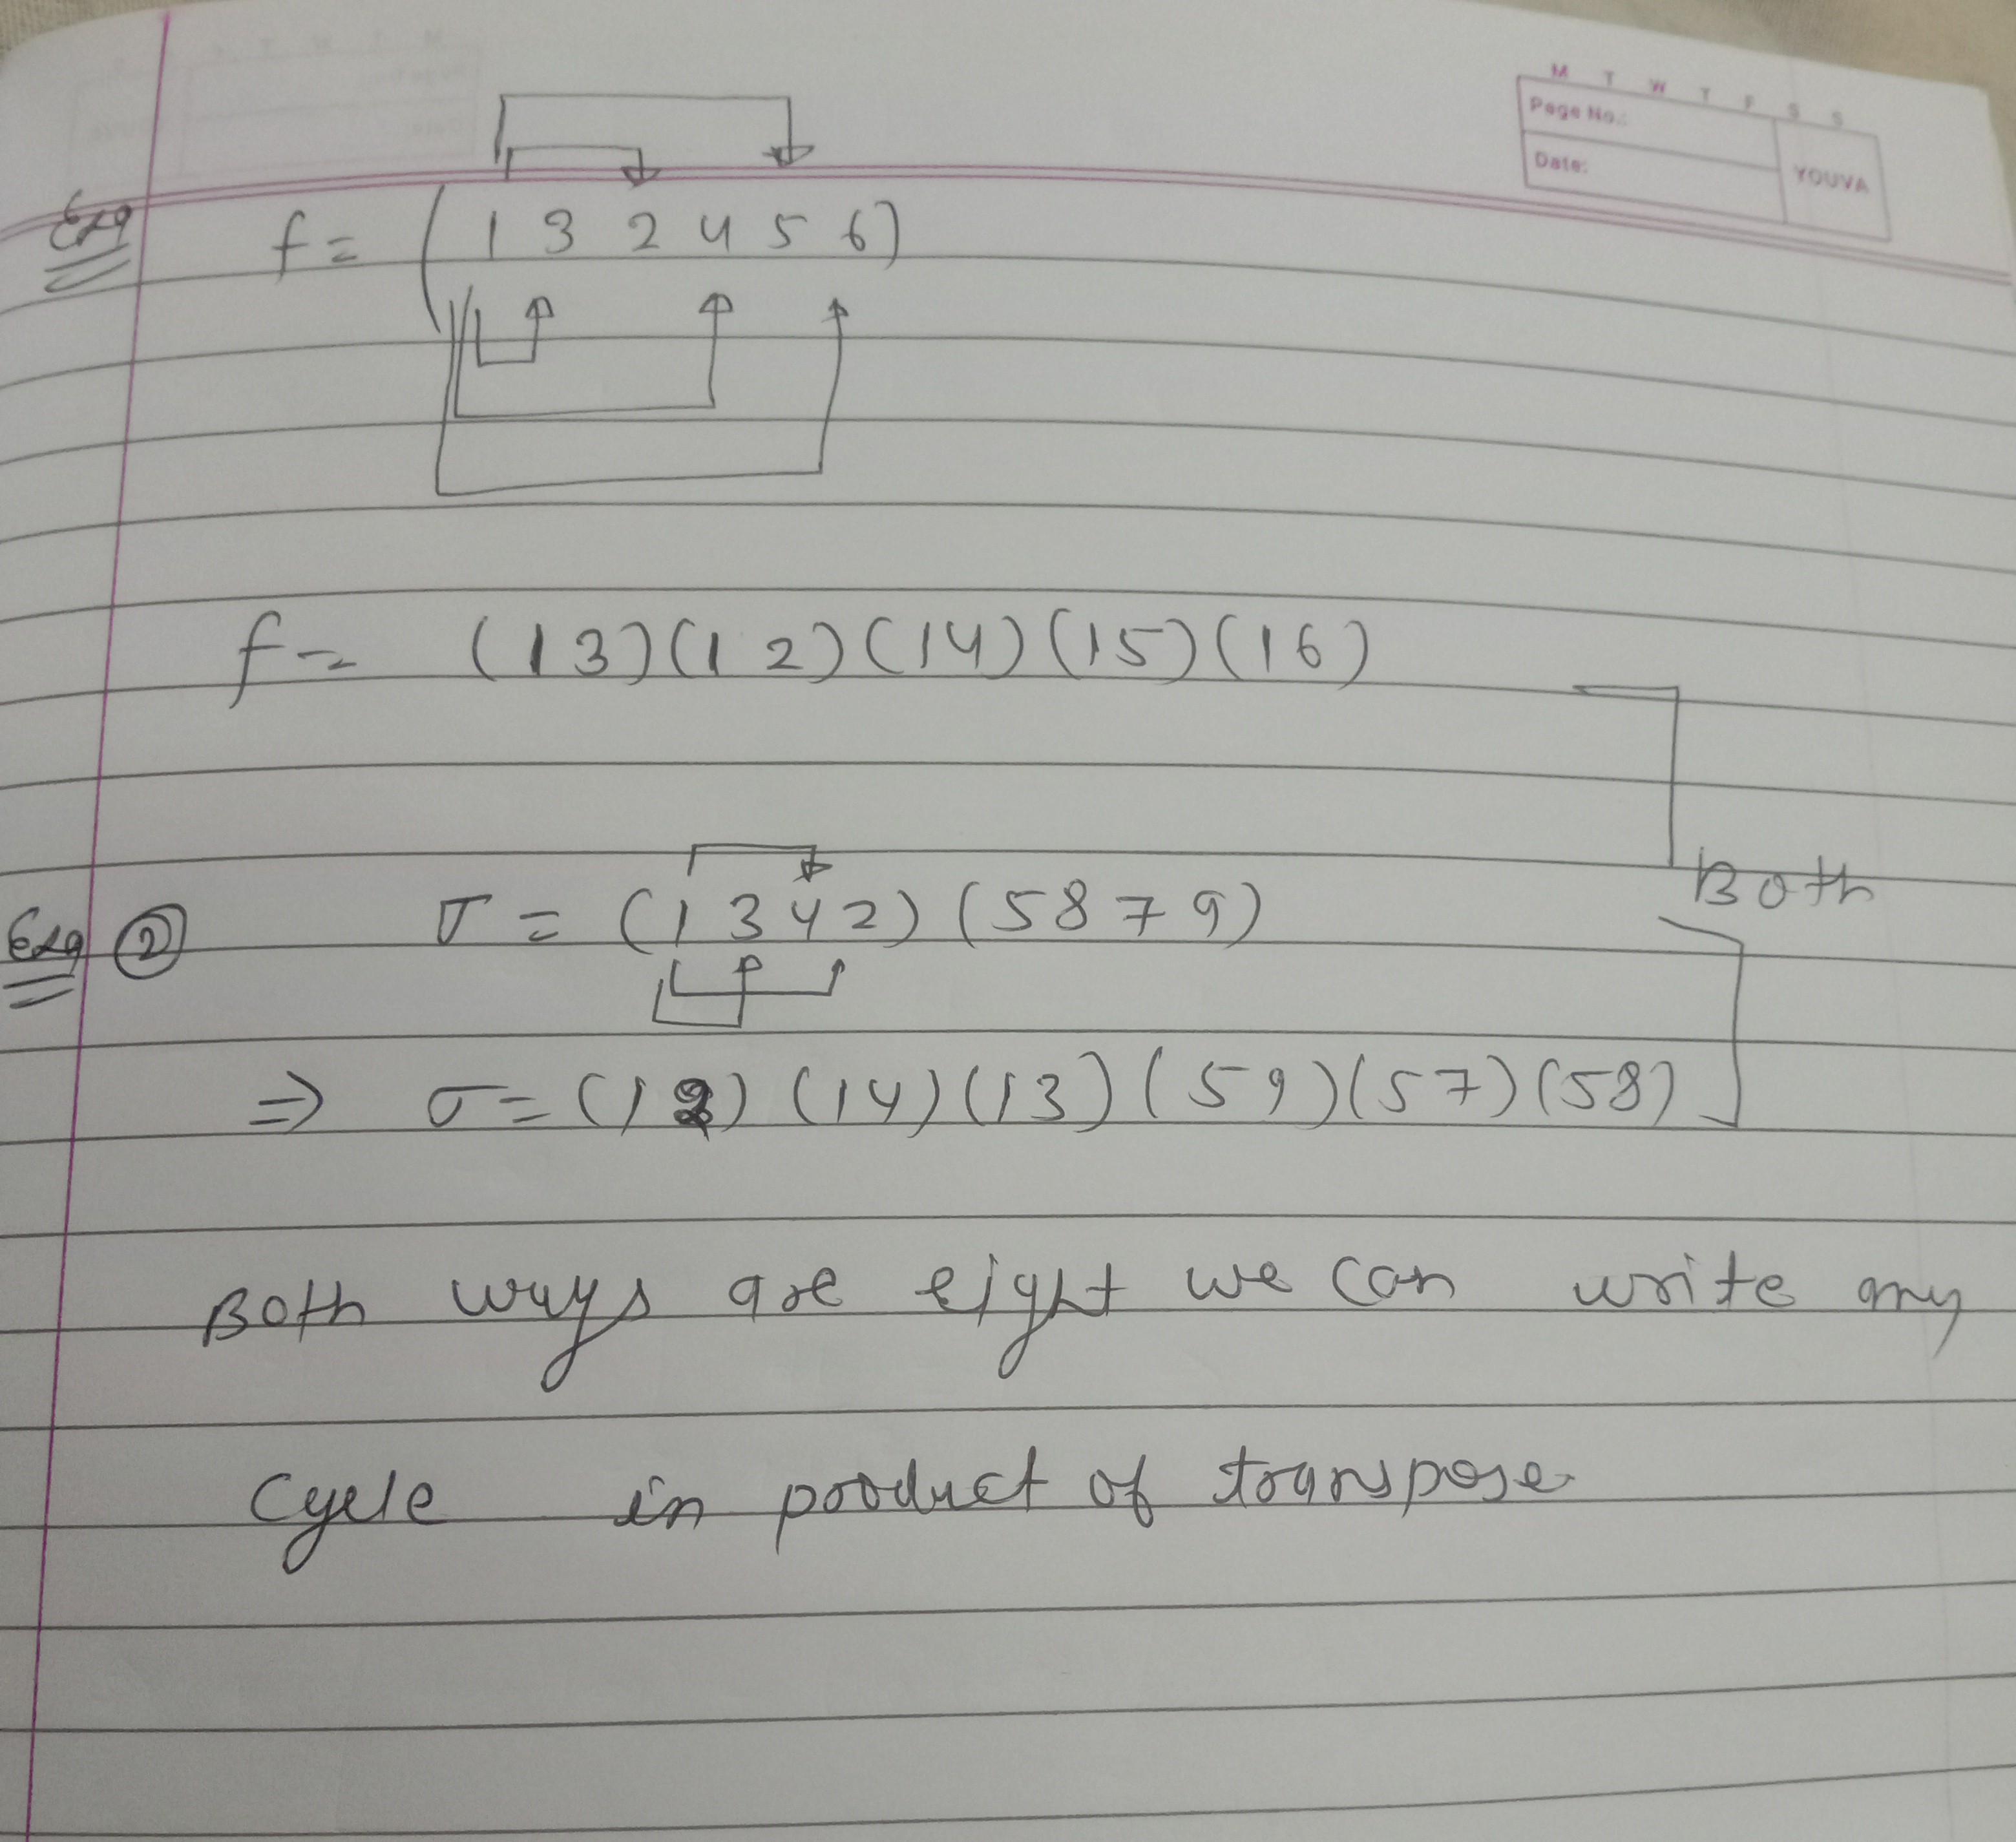 M T W T F S S
Page No.:
Date:
YOUVA
Exa f = ( 1 3 2 4 5 6)
f = (1 3)(1 2)(14)(15)(16)
Both
Exa ② σ = (1 3 4 2) (5 8 7 9)
⇒ σ = (1 2) (14) (13) (59)(57)(58)
Both ways are right we can write any
cycle in product of transpose